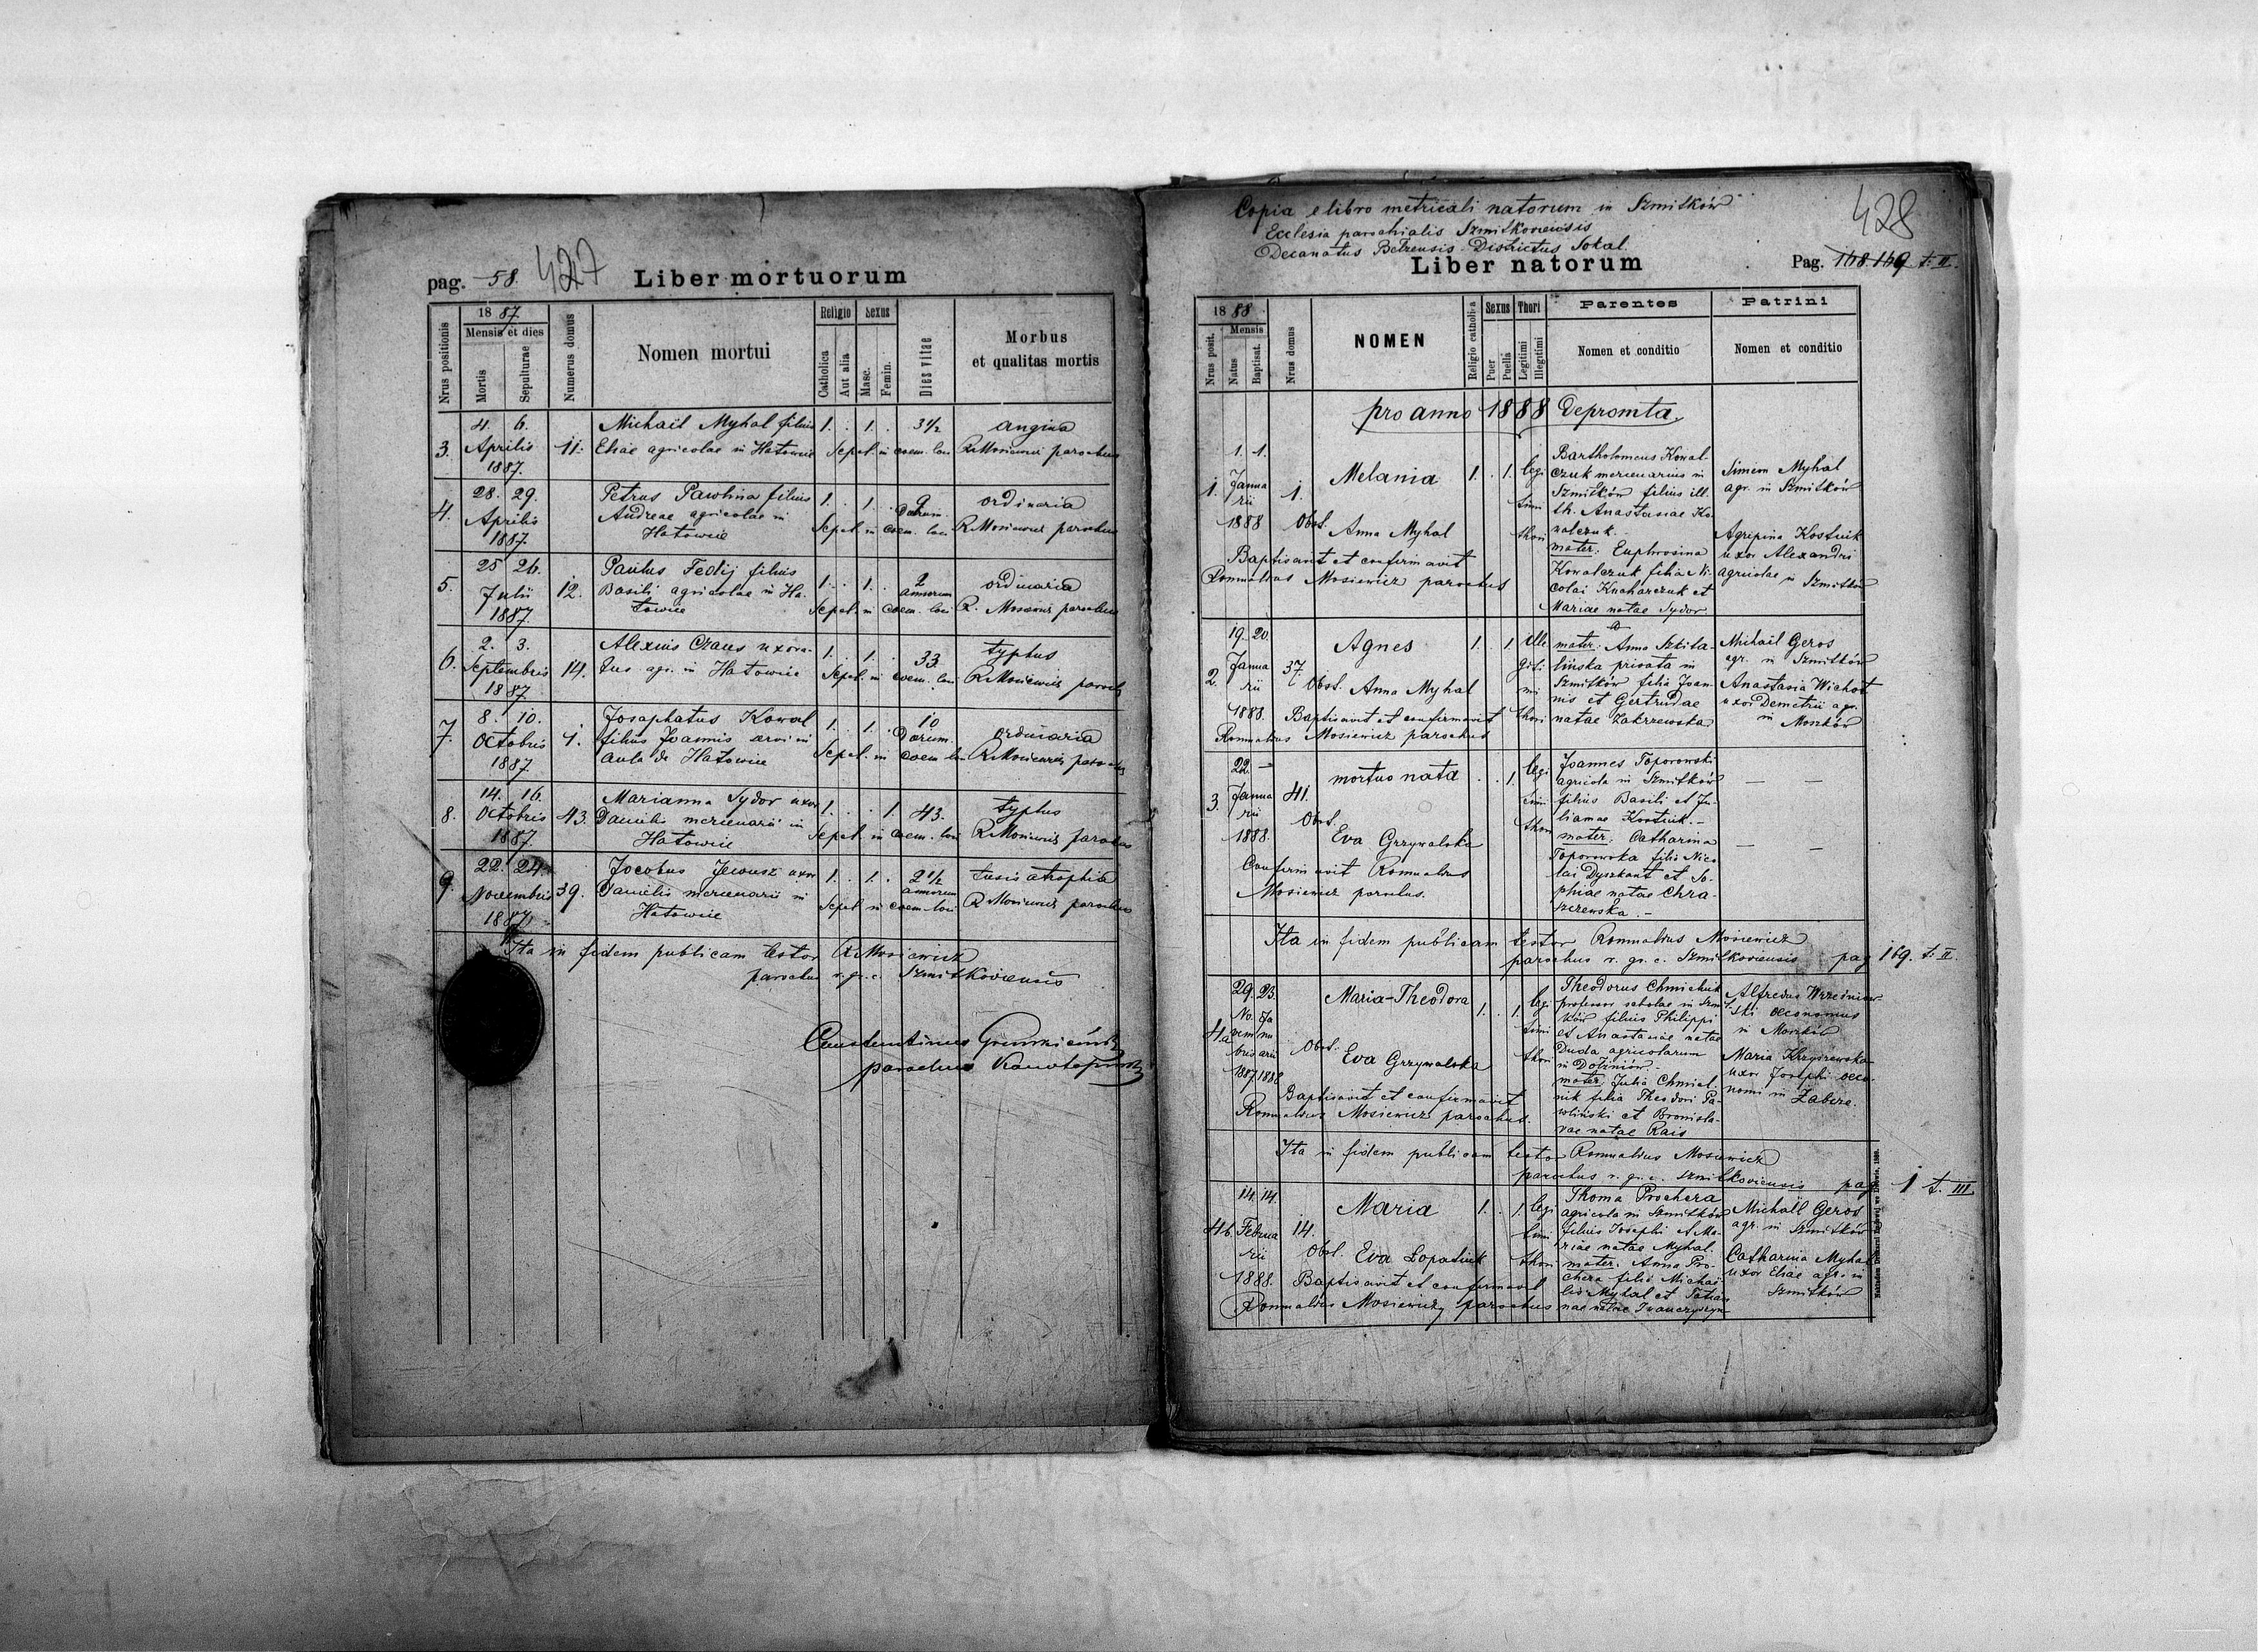 pag. 58. 427 Liber mortuorum
Nrus positionis
18 87
Mensis et dies
Mortis
Sepulturae
Numerus domus
Nomen mortui
Religio
Catholica
Aut alia
Sexus
Masc.
Femin.
Dies vitae
Morbus
et qualitas mortis
4. 6. Michail Myhal filius 1. . 1. . 3½ angina
3. Aprilis 11. Eliae agricolae in Hatowice Sepel. in coem. loci R Mosiewicz parochus
1887.
28. 29. Petrus Pawlina filius 1. . 1. . 9 ordinaria
4. Aprilis Andreae agricolae in Dierum
1887. Hatowice Sepel. in coem. loci R Mosiewicz parochus
25 26. Paulus Fedij filius 1. . 1. . 2 ordinaria
5. Julii 12. Basili agricolae in Ha- annorum
1887. towice Sepel. in coem. loci R. Mosiewicz parochus
2. 3. Alexius Czaus uxora- 1. . 1. . 33 typhus
6. Septembris 14. tus agr. in Hatowice Sepel. in coem. loci R Mosiewicz paroch
1887.
8. 10. Josaphatus Kowal 1. . 1. . 10 ordinaria
7. Octobris 1. filius Joannis servi in Dierum
1887. aula de Hatowice Sepel. in coem loci R Mosiewicz parochus
14. 16. Marianna Sydor uxor 1. . . 1. 43. typhus
8. Octobris 43. Danielis mercenarii in
1887. Hatowice Sepel. in coem. loci R Mosiewicz parochus
22. 24. Jacobus uxor 1. . 1. . 2½ tusis atrophia
9. Novembris 39. Danielis mercenarii in annorum
1887. Hatowice Sepel in coem. loci R Mosiewicz parochus
Ita in fidem publicam testor R Mosiewicz
parochus r. gr. c. Szmitkoviensis
parochus
Copia e libro metricali natorum in Szmitków
Ecclesia parochialis Szmitkoviensis
Decanatus Belzensis Districtus Sokal.
428
Liber natorum Pag. 168. 169 t. II.
Nrus posit.
18 88
Mensis
Natus
Baptisat.
Nrus domus
NOMEN
Religio catholica
Sexus
Puer
Puella
Thori
Legitimi
Illegitimi
Parentes
Nomen et conditio
Patrini
Nomen et conditio
pro anno 1888 depromta.
1. 1. Janua
rii
1888
1. 1. Melania 1. . 1. legi
timi
thori
Obst. Anna Myhal
Baptisavit et confirmavit
Romualdus Mosiewicz parochus
Bartholomeus Kowal
czuk mercenarius in
Szmitków filius ill.
th. Anastasiae Ko
walczuk.
mater: Euphrosina
Kowalczuk filia Ni-
colai Kucharczuk et
Mariae natae Sydor
Simeon Myhal
agr. in Szmitków
Agripina Kostiuk
uxor Alexandri
agricolae in Szmitków
19. 20. Janua
rii
1888.
2. 37. Agnes 1. . 1 Ille
giti
mi
thori
Obst. Anna Myhal
Baptisavit et confirmavit
Romualdus Mosiewicz parochus
mater: Anna Szkita-
lińska privata in
Szmitków filia Joan-
nis et Gertrudae
natae Zakrzewska
Michail Geros
agr. in Szmitków
Anastasia Wichot
uxor Demetrii agr.
in Moszków
22. — Janua
rii
1888.
3. 41. mortuo nata . . 1. legi
timi
thori
Obst.
Eva Grzywalska
Confirmavit Romualdus
Mosiewicz parochus.
Joannes Toporowski
agricola in Szmitków
filius Basili et Ju-
liannae Kostiuk. —
mater: Catharina
Toporowska filia Nico
lai Dyszkant et So-
phiae natae Chra-
szczewska. —
— —
— —
Ita in fidem publicam testor Romualdus Mosiewicz
parochus r. gr. c. Szmitkoviensis pag 169. t. II.
29. 23.
No- Ja
vem nu
bris arii
1887. 1888
4a Maria-Theodora 1. . 1. legi
timi
thori
Obst. Eva Grzywalska
Baptisavit et confirmavit
Romualdus Mosiewicz parochus.
Theodorus Chmieluk
professor scholae in Szmit
ków filius Philippi
et Anastasiae natae
Duda agricolarum
in Dołżniów.
mater Julia Chmiel-
nik filia Theodori Pa-
wliński et Bronisla-
vae natae Rais
Alfredus
ski oeconomus
in Moszków
Maria Krzyszewska
uxor Josephi oeco-
nomi in Zabcze.
Ita in fidem publicam testor Romualdus Mosiewicz
parochus r. gr. c. Szmitkoviensis pag 1 t. III
14. 14. Februa
rii
1888.
4b. 14. Maria 1. . 1. legi
timi
thori
Obst. Eva Lopatiuk
Baptisavit et confirmavit
Romualdus Mosiewicz parochus
Thoma Prochera
agricola in Szmitków
filius Josephi et Ma-
riae natae Myhal.
mater: Anna Pro-
chera filia Michai
lis Myhal et Tatian
nae natae Iwanczyszyn
Michaïl Geros
agr. in Szmitków
Catharina Myhal
uxor Eliae agr. in
Szmitków